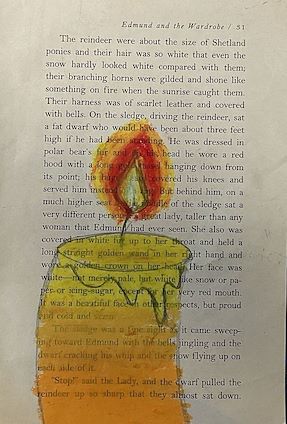 Edmund and the Wardrobe / 31
The reindeer were about the size of Shetland
ponies and their hair was so white that even the
snow hardly looked white compared with them;
their branching horns were gilded and shone like
something on fire when the sunrise caught them.
Their harness was of scarlet leather and covered
with bells. On the sledge, driving the reindeer, sat
a fat dwarf who would have been about three feet
high if he had He was dressed in
polar bear's head he wore a red
hood with a long hanging down from
its point; his covered his knees and
served him behind him, on a
much higher se of the sledge sat a
very different person great lady, taller than any
woman that Edmund had ever seen. She also was
covered white fur up to her throat and held a
long straight golden wand in her right hand and
wore a golden crown on her Her face was
white—not merely pale, but white like snow or pa-
per or icing-sugar, except very red mouth.
It was a beautiful face in other respects, but proud
and cold and stern.
The sledge was a fine sight as it came sweep-
ing toward Edmund with the bells jingling and the
dwarf cracking his whip and the snow flying up on
each side of it.
"Stop!" said the Lady, and the dwarf pulled the
reindeer up so sharp that they almost sat down.